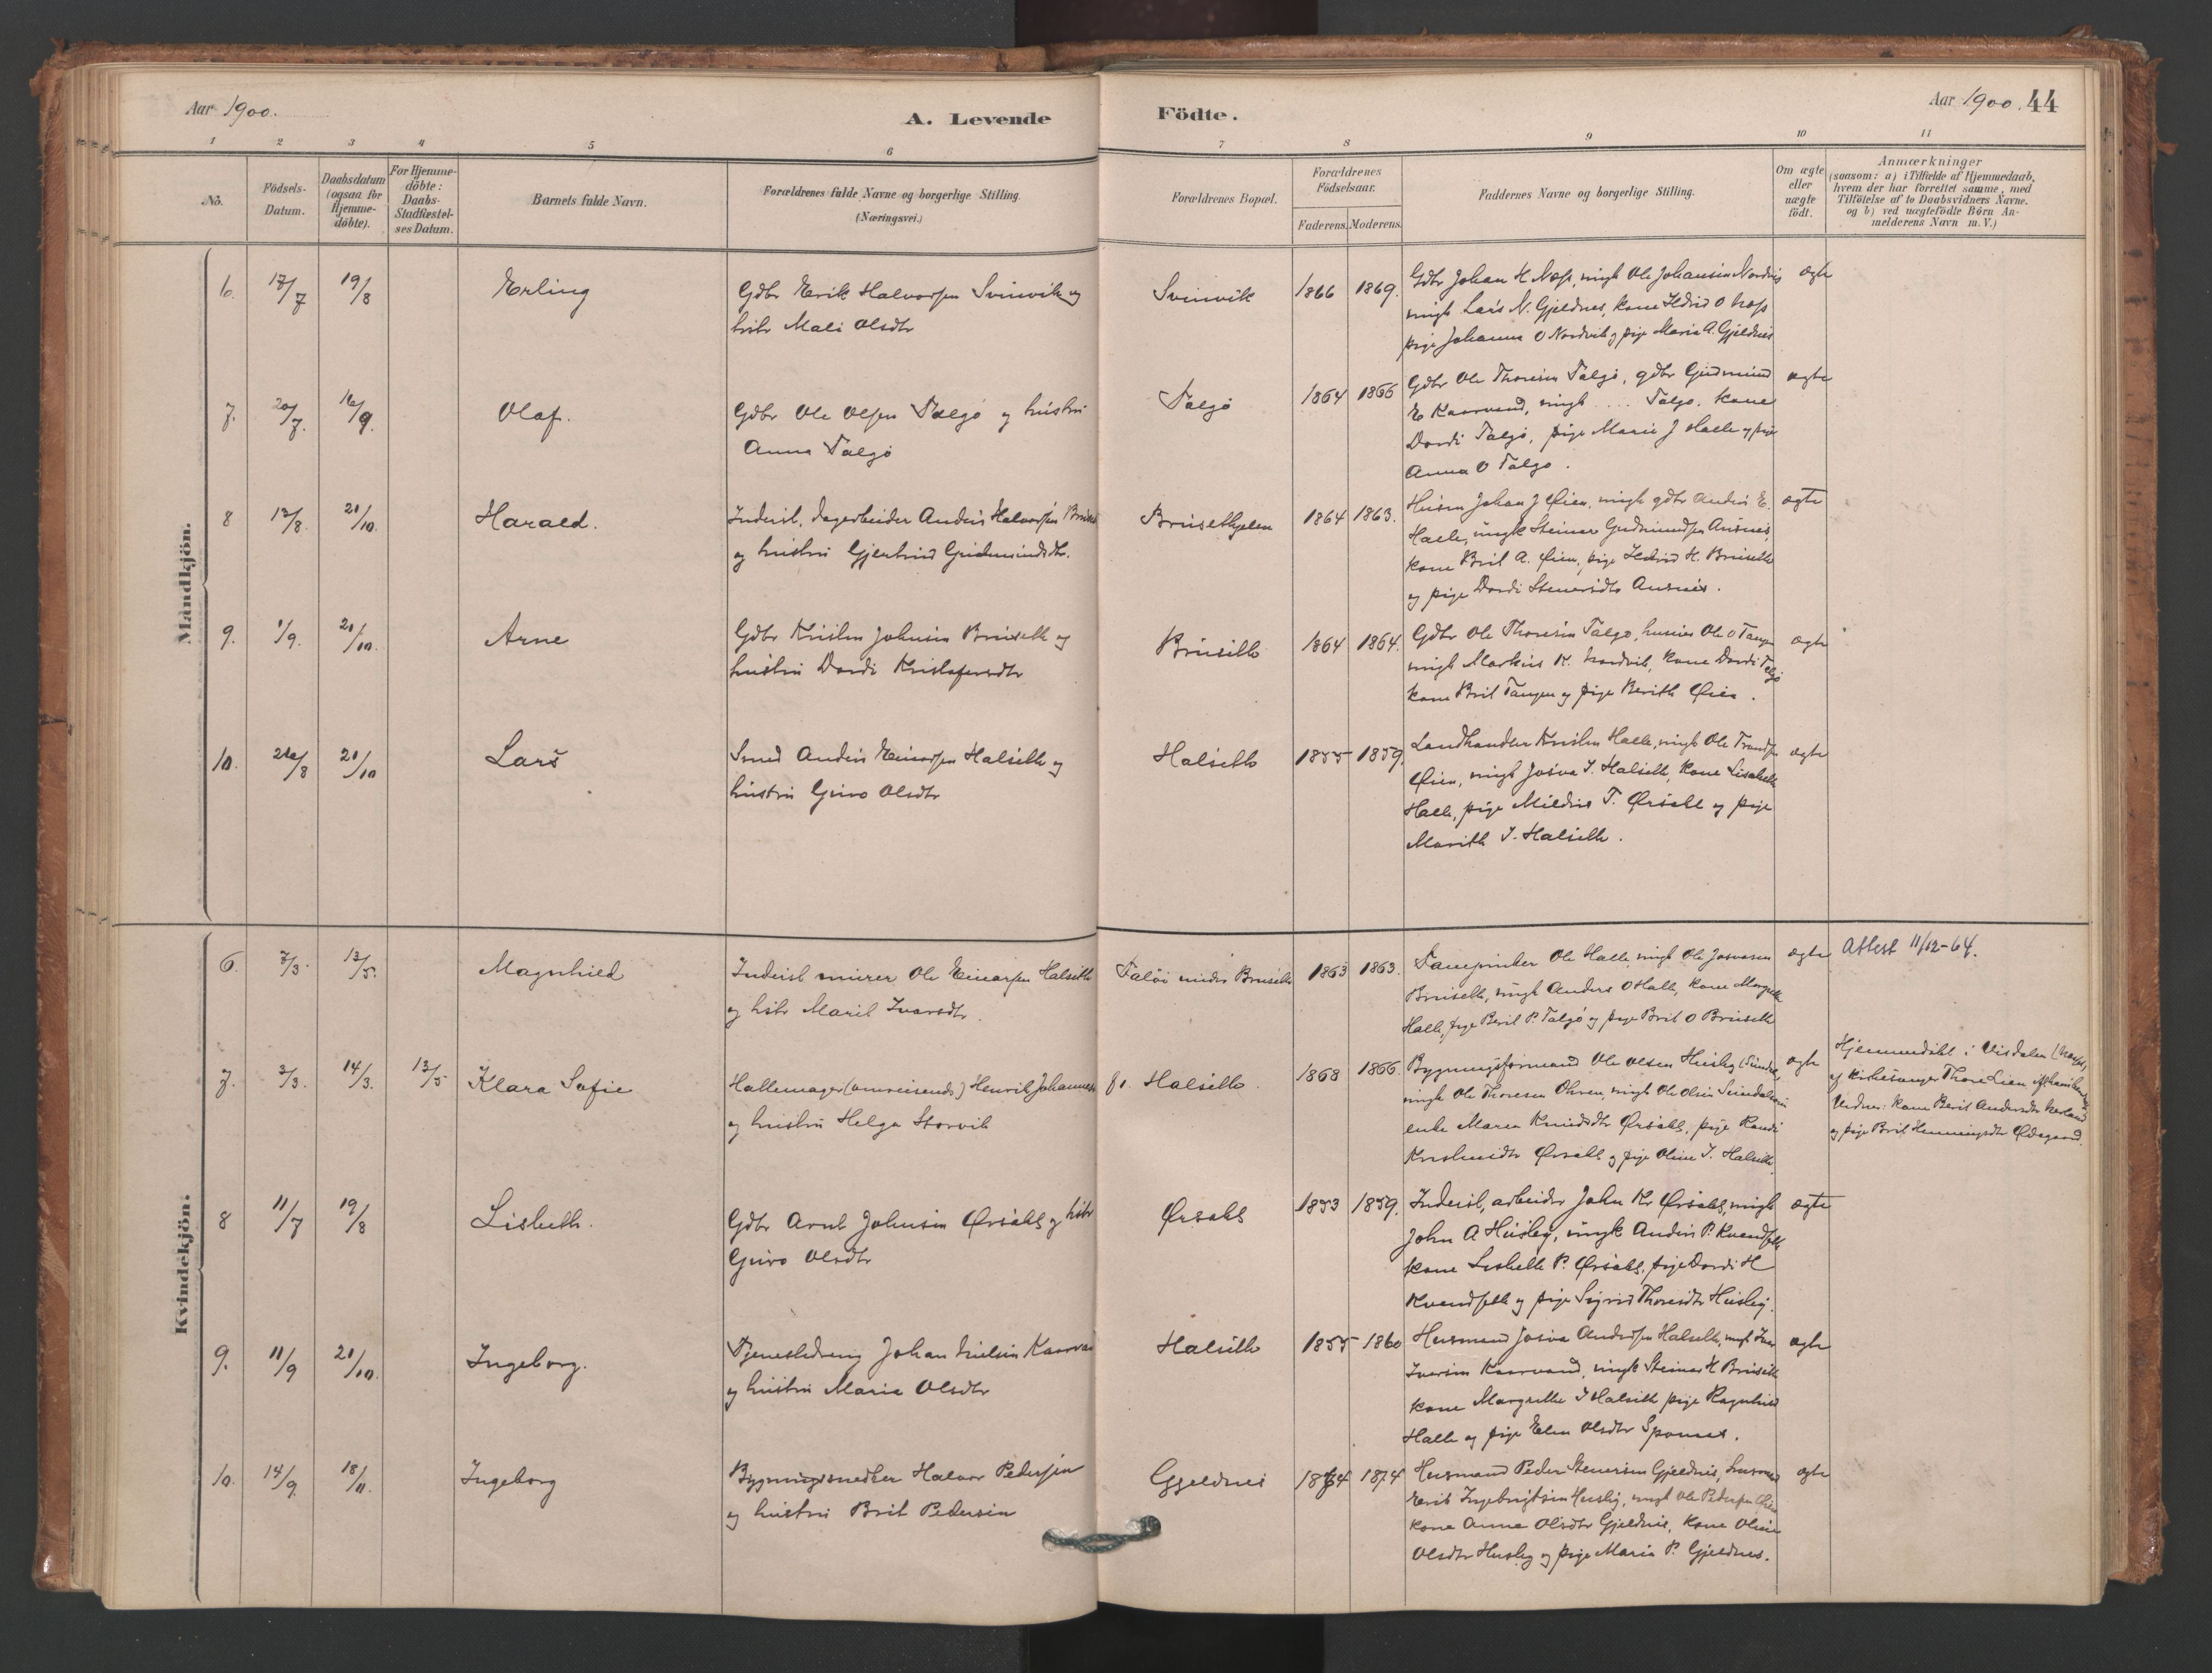 Aar 1900.
A. Levende
Födte.
Aar 1900. 44
1 2 3 4 5 6 7 8 9 10 11
No.
Födsels-
Datum.
Daabsdatum
(ogsaa for
Hjemme-
döbte).
For Hjemme-
döbte:
Daabs-
Stadfæstel-
ses Datum.
Barnets fulde Navn.
Forældrenes fulde Navne og borgerlige Stilling.
(Næringsvei.)
Forældrenes Bopæl.
Forældrenes
Födselsaar.
Faderens. Moderens.
Faddernes Navne og borgerlige Stilling.
Om ægte
eller
uægte
födt.
Anmærkninger
(saasom: a) i Tilfælde af Hjemmedaab,
hvem der har forrettet samme, med
Tilföielse af to Daabsvidners Navne.
og b) ved uægtefödte Börn An-
melderens Navn m. V.)
Mandkjön.
6. 17/7 19/8 Erling
Gdbr Erik Halvorsen Svinvik og
hstr Mali Olsdtr
Svinvik 1866 1869.
Gdbr Johan H Næss, ungk Ole Johansen Nordvik
ungk Lars N. Gjeldnes, kone Ildrid O Næss
pige Johanna O Nordvik og pige Maria A. Gjeldnes
ægte
7. 20/7. 16/9. Olaf.
Gdbr Ole Olsen Talgø og hustru
Anna Talgø
Talgø 1864 1866
Gdbr Ole Thoresen Talgø, gdbr Gudmund
E Kaarvand, ungk .... Talgø, kone
Dordi Talgø, pige Marie J Halle og pige
Anna O Talgø.
ægte
8 12/8. 21/10. Harald.
Inderst, dagarbeider Anders Halvorsen
og hustru Gjertrud Gudmundsdtr.
Brusethjelen 1864 1863.
Husm Johan J Øien, ungk gdbr Anders E.
Halle, ungk Steiner Gudmundsen Ausnes,
kone Brit A. Øien, pige Ildrid H. Bruseth
og pige Dordi Stenersdtr Ausnes.
ægte
9. 1/9. 21/10. Arne
Gdbr Kristen Johnsen Bruseth og
hustru Dordi Kristofersdtr
Bruseth 1864 1864.
Gdbr Ole Thoresen Talgø, husm Ole O Tangen
ungk Markus K. Nordvik, kone Dordi Talgø
kone Brit Tangen og pige Berith Øien.
ægte
10. 26/8 21/10 Lars
Smed Anders Einarsen Halseth og
hustru Guro Olsdtr
Halseth 1855 1859.
Landhandler Kristen Halle, ungk Ole Trondsen
Øien, ungk Josva I. Halseth, kone Lisabeth
Halle, pige Mildrid T. Ørsahl og pige
Marith I. Halseth.
ægte
Kvindekjön.
6. 7/3. 13/5. Magnhild
Inderst murer Ole Einarsen Halseth
og hstr Marit Ivarsdtr.
Taløi under Bruseth 1863 1863.
Ole Halle, ungk Ole Josvasen
Bruseth, ungk Anders O Halle, kone Margreth
Halle, pige Berit P. Talgø og pige Brit O Bruseth
ægte
Attest 11/12-64.
7. 2/3. 14/3. 13/5 Klara Sofie
(omreisende) Henrik Johannesen
og hustru Helga Storvik
Halseth. 1868 1866.
Bygningsformand Ole Olsen Husby
ungk Ole Thoresen Ohren, ungk Ole Olsen
enke Maren Knudsdtr Ørsahl, pige Randi
Ørsahl og pige Oline I. Halseth.
ægte
Hjemmedøbt i Visdalen
af Kirkesanger Thore Lien
Vidner: kone Berit Andersdtr
og pige Brit Henningsdtr Ødegaard.
8 11/7 19/8 Lisbeth.
Gdbr Arnt Johnsen Ørsahl og hstr
Guro Olsdtr
Ørsahl 1853 1859.
Inderst, arbeider John Kr Ørsahl, ungk
John A Husby, ungk Anders P. Kvendseth
kone Lisbeth P. Ørsahl, pige Dordi H
Kvendseth og pige Sigrid Thoresdtr Husby.
ægte
9. 11/9 21/10. Ingeborg.
Tjenestedreng Johan Nielsen
og hustru Maria Olsdtr
Halseth 1855 1860
Husmand Josva Andersen Halseth, ungk Ivar
Iversen Kaarvand, ungk Steiner H Bruseth
kone Margrethe I Halseth pige Ragnhild
Halle og pige Elen Olsdtr
ægte
10. 14/9. 18/11. Ingeborg
Bygningssnedker Halvor Pedersen
og hustru Brit Pedersen
Gjeldnes 1864 1874
Husmand Peder Stenersen Gjeldnes, husmand
Erik Ingebrigtsen Husby, ungk Ole Pedersen Øien
kone Anna Olsdtr Gjeldnes, kone Oline
Olsdtr Husby og pige Maria P. Gjeldnes.
ægte